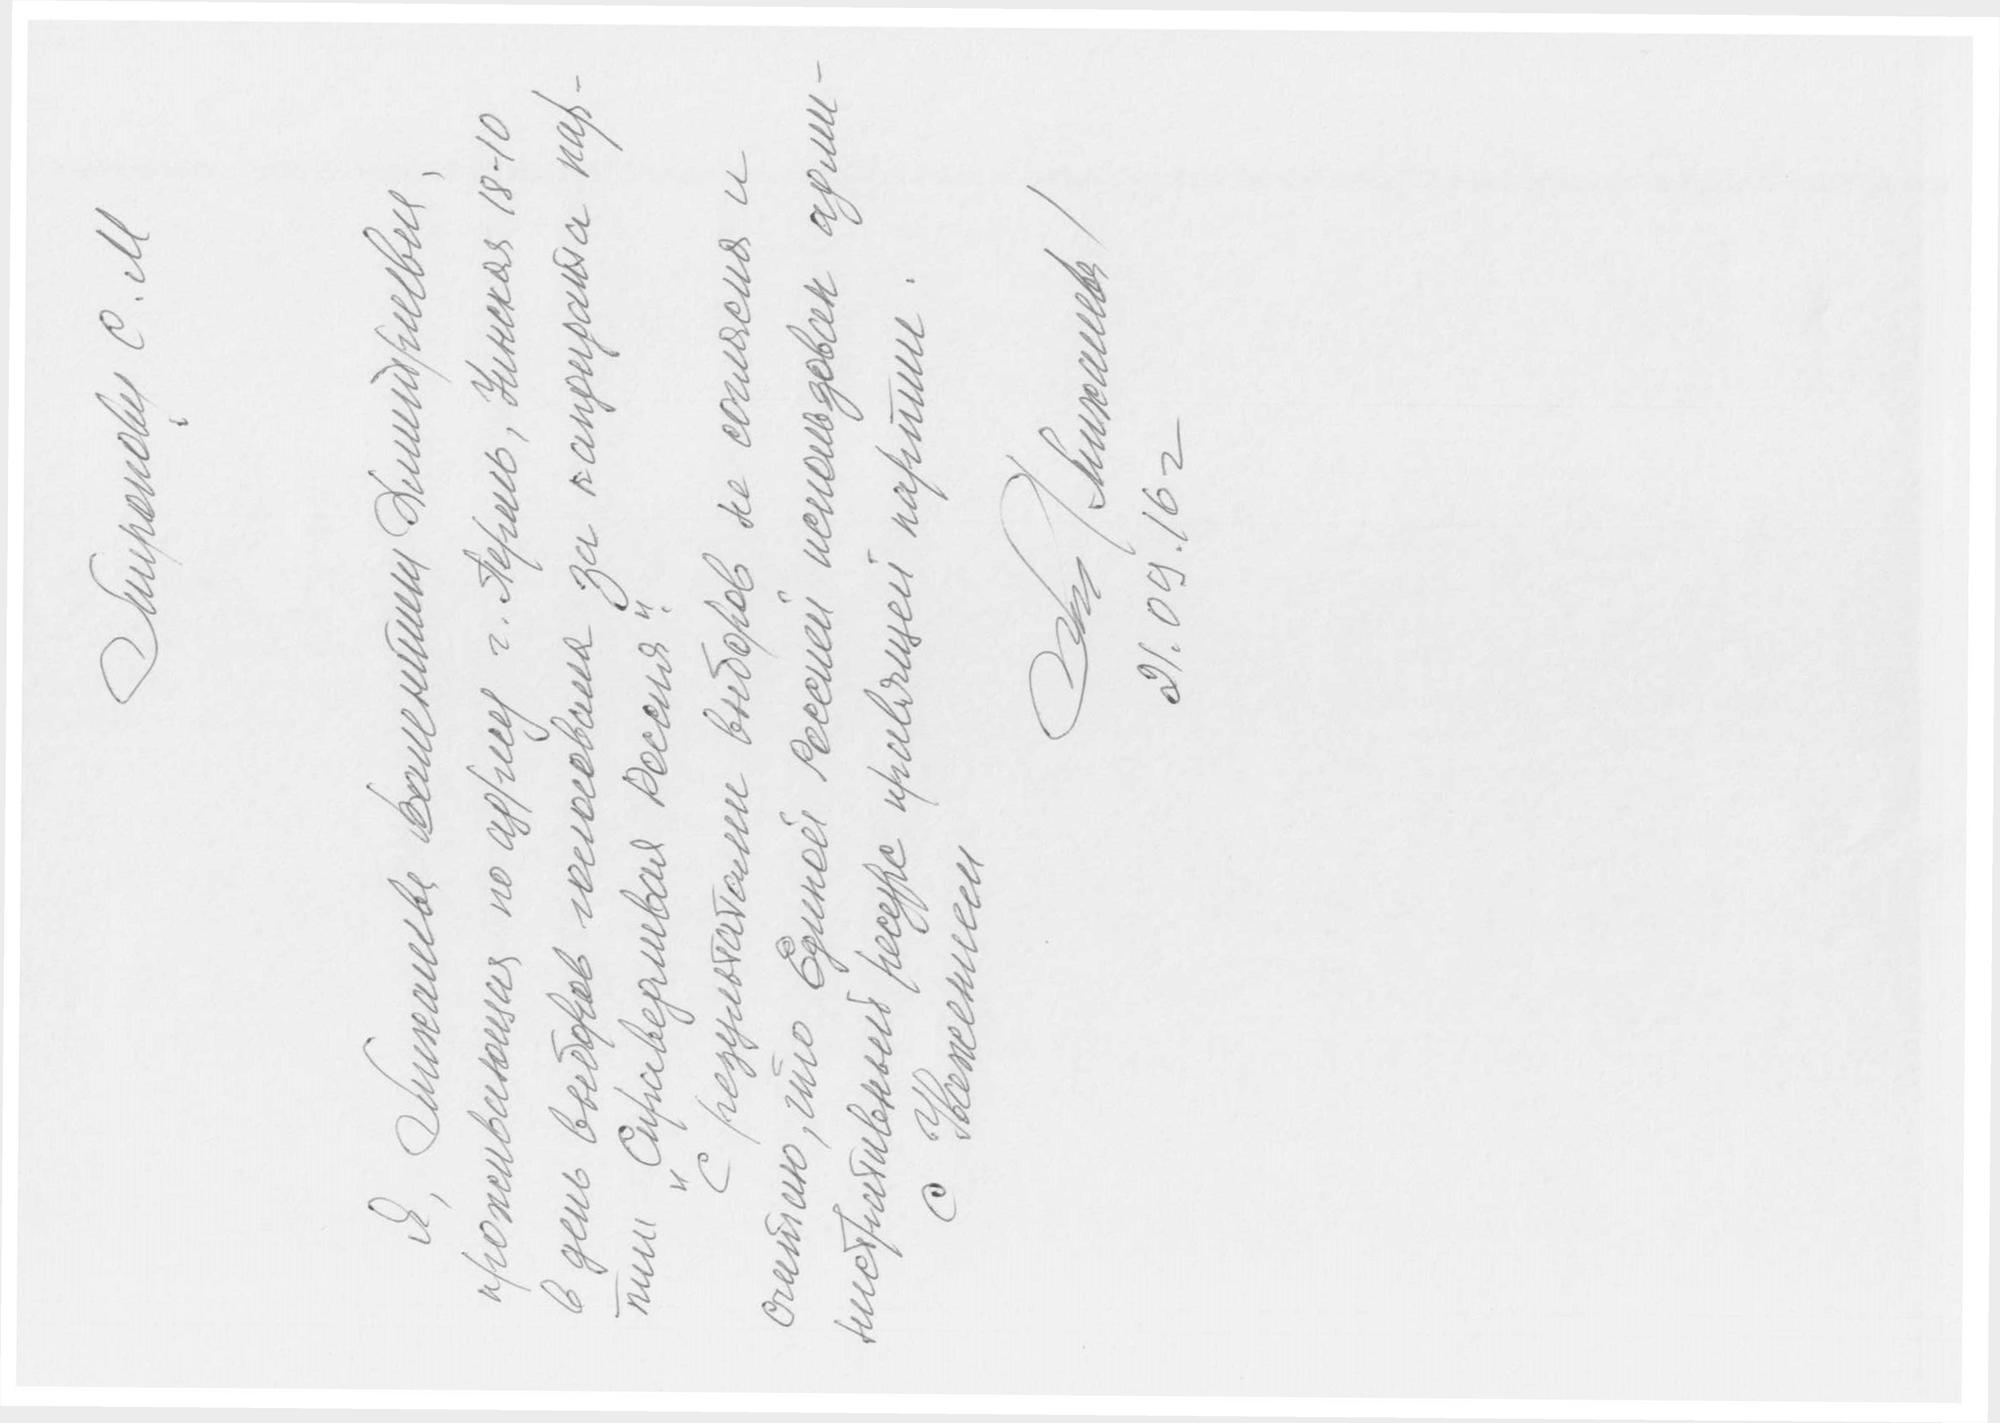 Миронову С.М
Я, Михалева Валентина Дмитриевна,
проживающая по адресу г. Пермь, Уинская 18-10
в день выборов голосовала за кандидата пар-
тии "Справедливая Россия".
С результатами выборов не согласна и
считаю, что Единой Россией использован адми-
нистративный ресурс правящей партии.
С Уважением
/Михалева/
21.09.16г